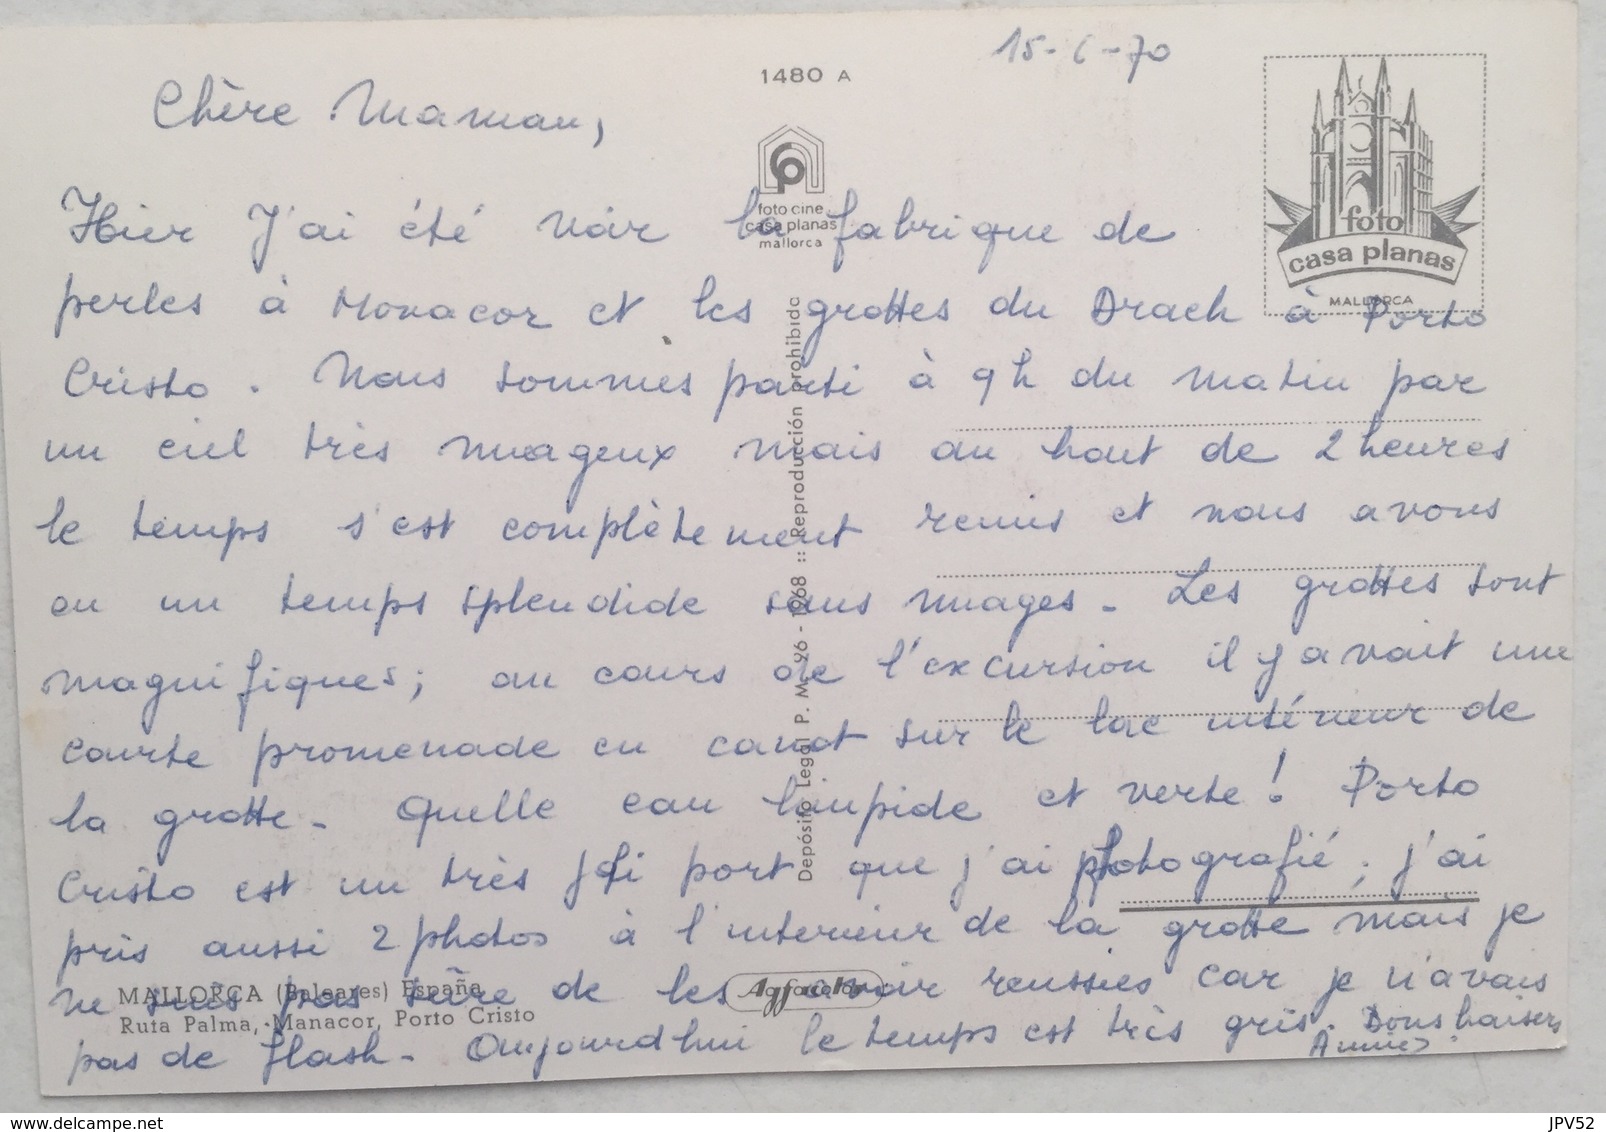 15-6-70
1480 A
Chère Maman,
foto cine
casa planas
mallorca
foto
casa planas
MALLORCA
Hier J'ai été voir la fabrique de
perles à Monacor et les grottes du Drach à Porto
Cristo. Nous sommes parti à 9h du matin par
un ciel très nuageux mais au bout de 2 heures
le temps s'est complètement remis et nous avons
eu un temps splendide sans nuages - Les grottes sont
magnifiques; au cours de l'excursion il y avait une
courte promenade en canot sur le lac intérieur de
la grotte - Quelle eau limpide et verte! Porto
Cristo est un très joli port que j'ai photografié; j'ai
pris aussi 2 photos à l'interieur de la grotte mais je
ne suis pas sûre de les avoir reussies car je n'avais
pas de flash - Aujourd'hui le temps est très gris. Bons baisers
Annie
Depósito Legal P. M. 96 - 1968 :: Reproducción prohibida
MALLORCA (Baleares) España
Ruta Palma, Manacor, Porto Cristo
Agfacolor
delcampe.net
JPV52